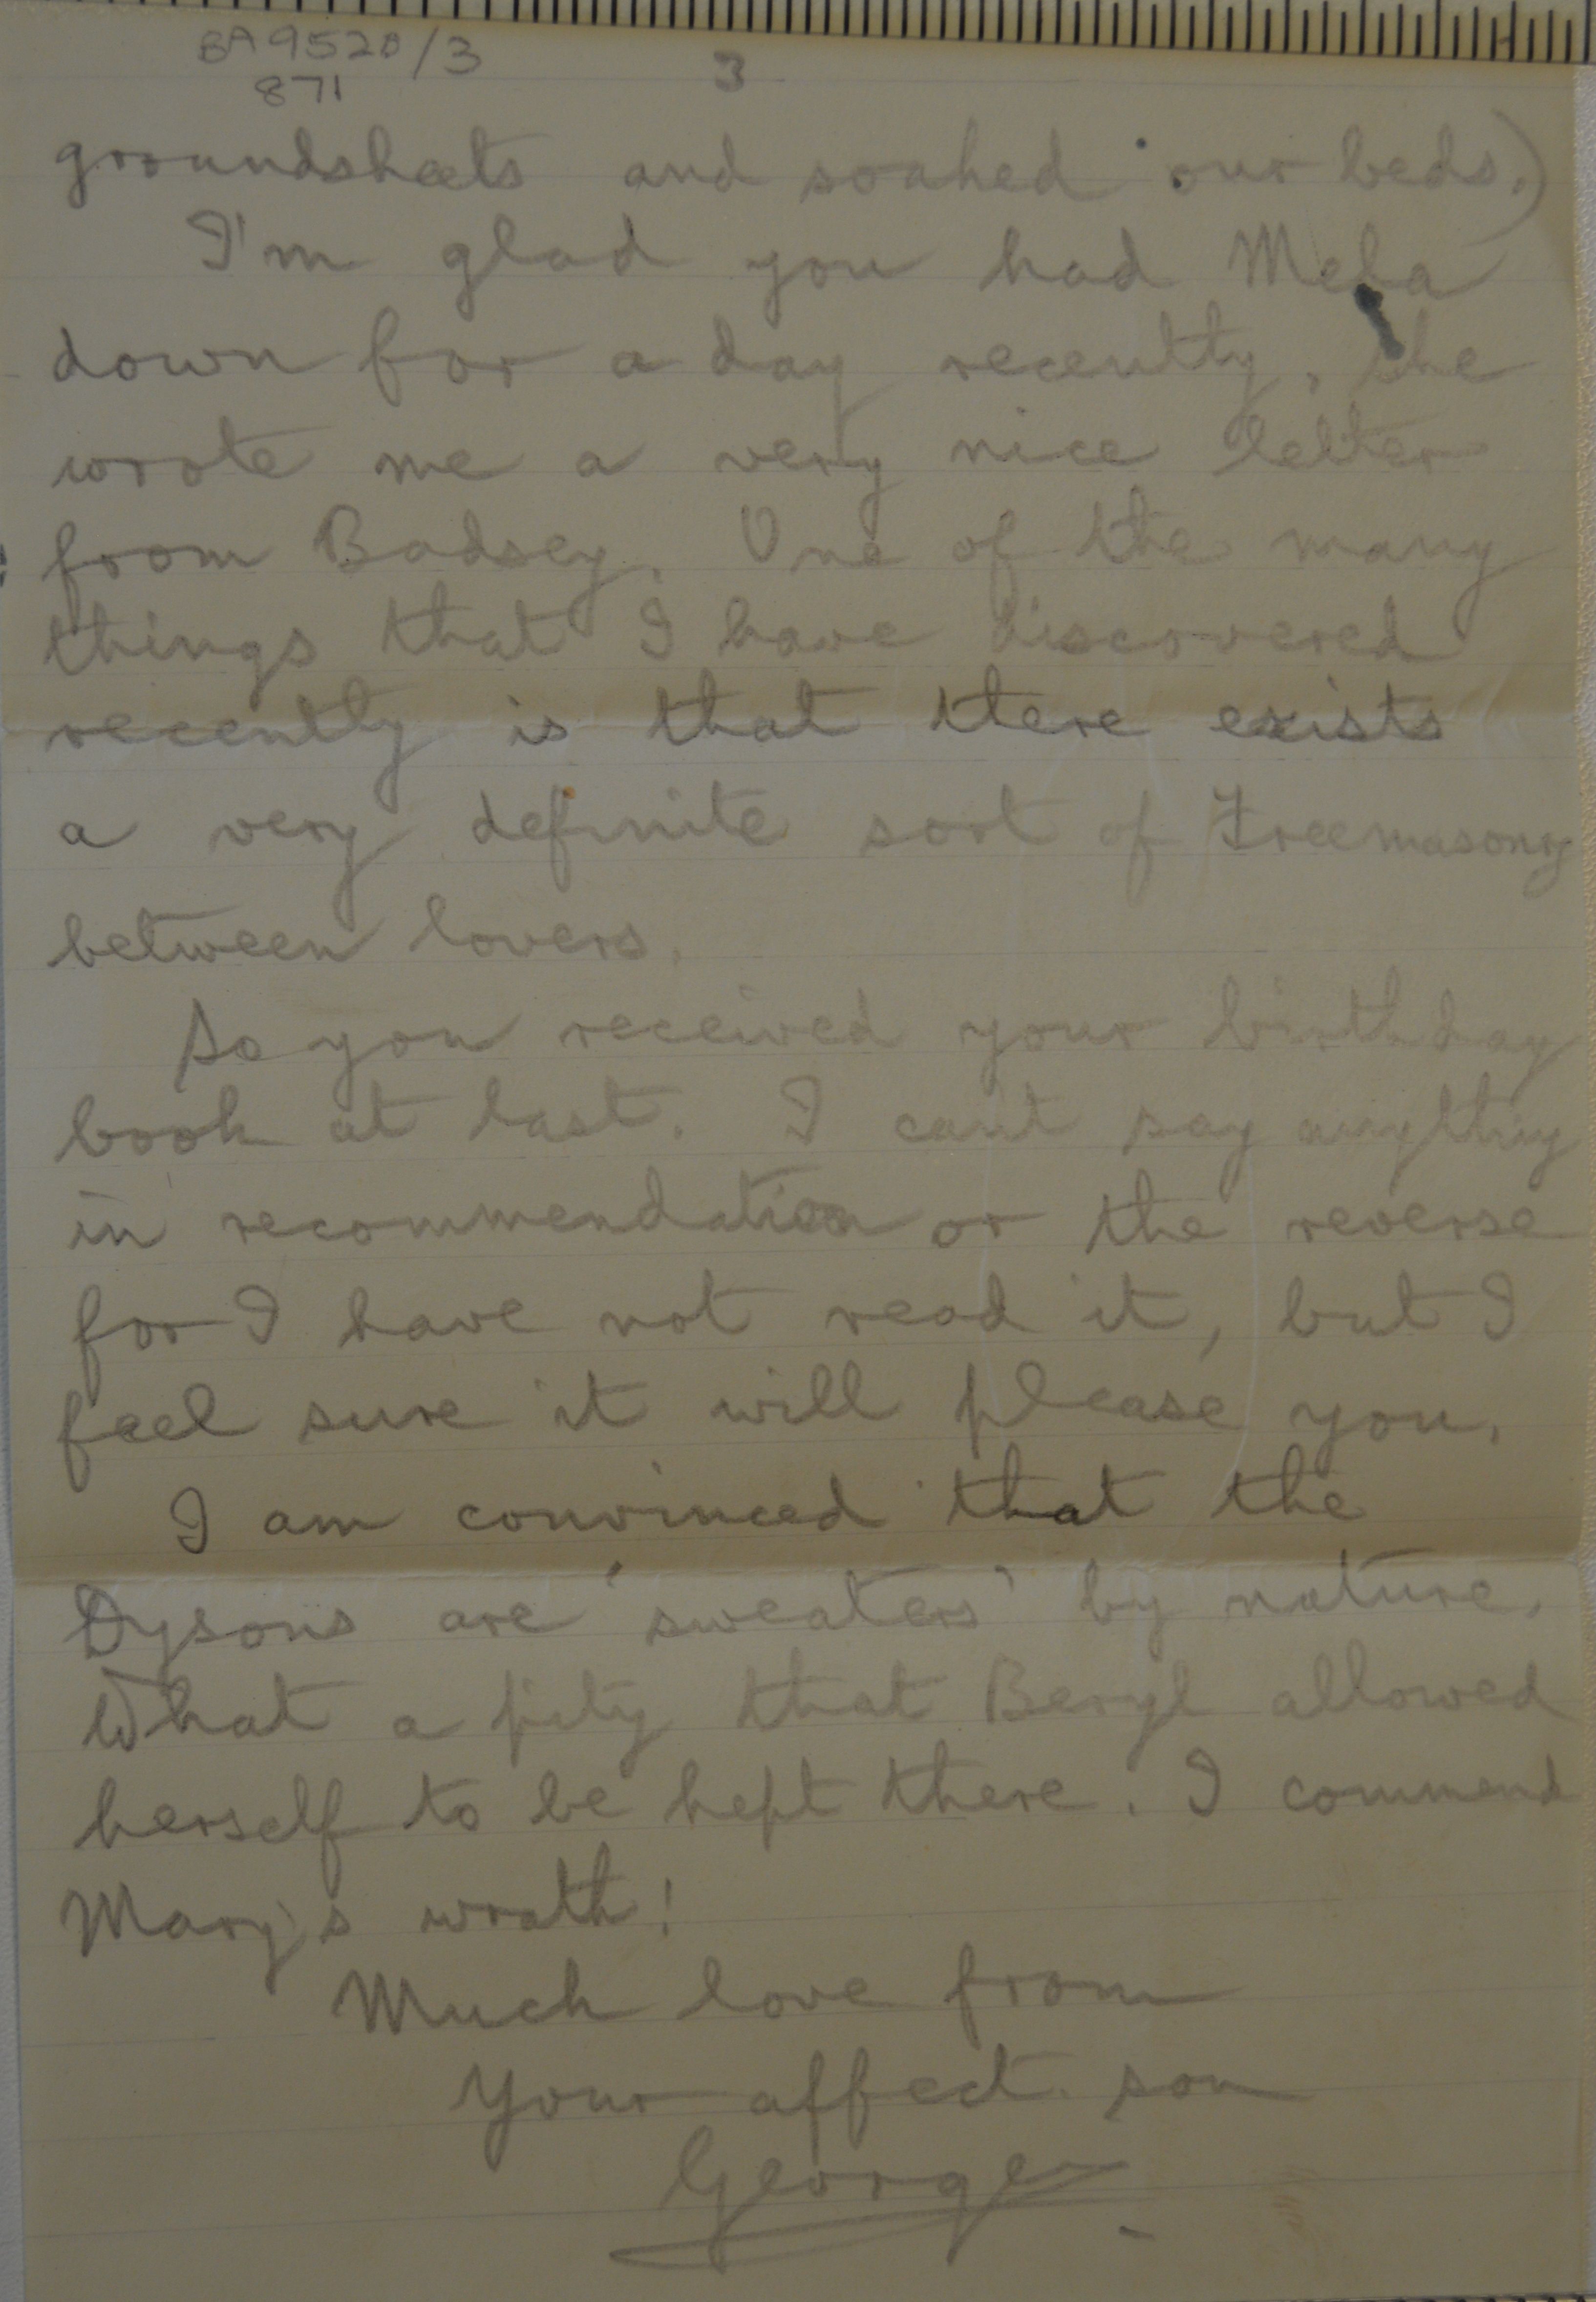 BA9520/3
871
3
groundsheets and soaked our beds.)
I'm glad you had Mela
down for a day recently, she
wrote me a very nice letter
from Badsey. One of the many
things that I have discovered
recently is that there exists
a very definite sort of Freemasonry
between lovers.
So you received your birthday
book at last. I can't say anything
in recommendation or the reverse
for I have not read it, but I
feel sure it will please you.
I am convinced that the
Dysons are 'sweaters' by nature.
What a pity that Beryl allowed
herself to be kept there. I commend
Mary's wrath!
Much love from
Your affect. son
George